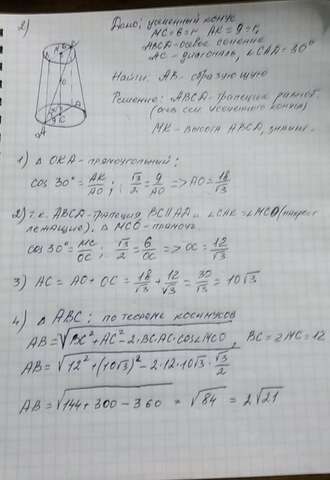 2)
Дано: усеченный конус
MC=6=r AK=9=r₁
ABCD-осевое сечение
AC - диагональ, ∠CAD=30°
Найти: AB - образующую
Решение: ABCD-трапеция равноб.
(осев. сеч. усеченного конуса)
MK - высота ABCD, значит
1) Δ OKA - прямоугольный:
cos 30° = AK/AO ; √3/2 = 9/AO => AO = 18/√3
2) т.к. ABCD-трапеция BC||AD и ∠OAK=∠MCO (накрест
лежащие), Δ MCO - прямоуг.
cos 30° = MC/OC ; √3/2 = 6/OC => OC = 12/√3
3) AC = AO + OC = 18/√3 + 12/√3 = 30/√3 = 10√3
4) Δ ABC: по теореме косинусов
AB = √(BC² + AC² - 2·BC·AC·cos∠MCO) , BC=2MC=12
AB = √(12² + (10√3)² - 2·12·10√3·√3/2)
AB = √(144 + 300 - 360) = √84 = 2√21